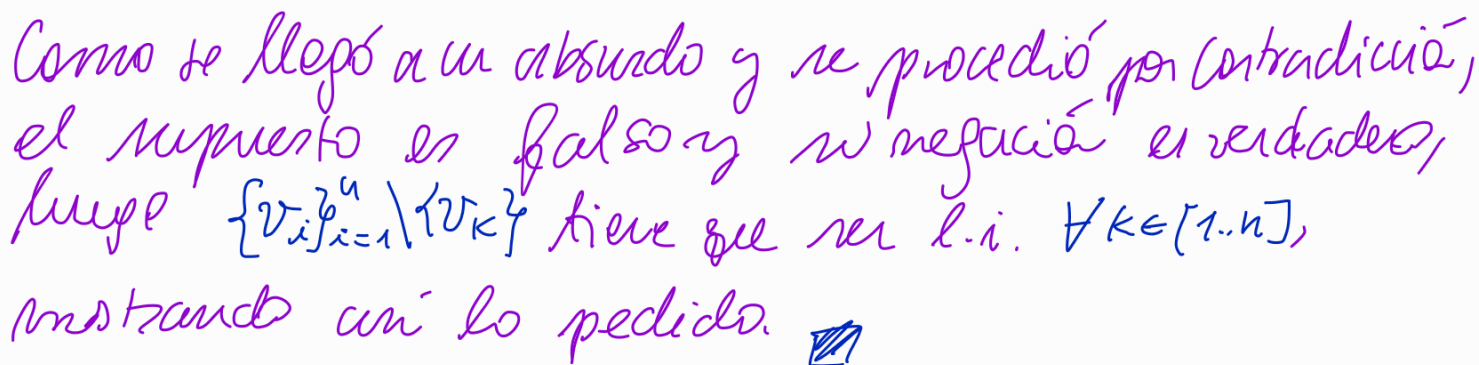 Como se llegó a un absurdo y se procedió por contradicción,
el supuesto es falso y su negación es verdadero,
luego {v_i}_{i=1}^n \ {v_k} tiene que ser l.i. ∀k∈[1..n],
mostrando así lo pedido.